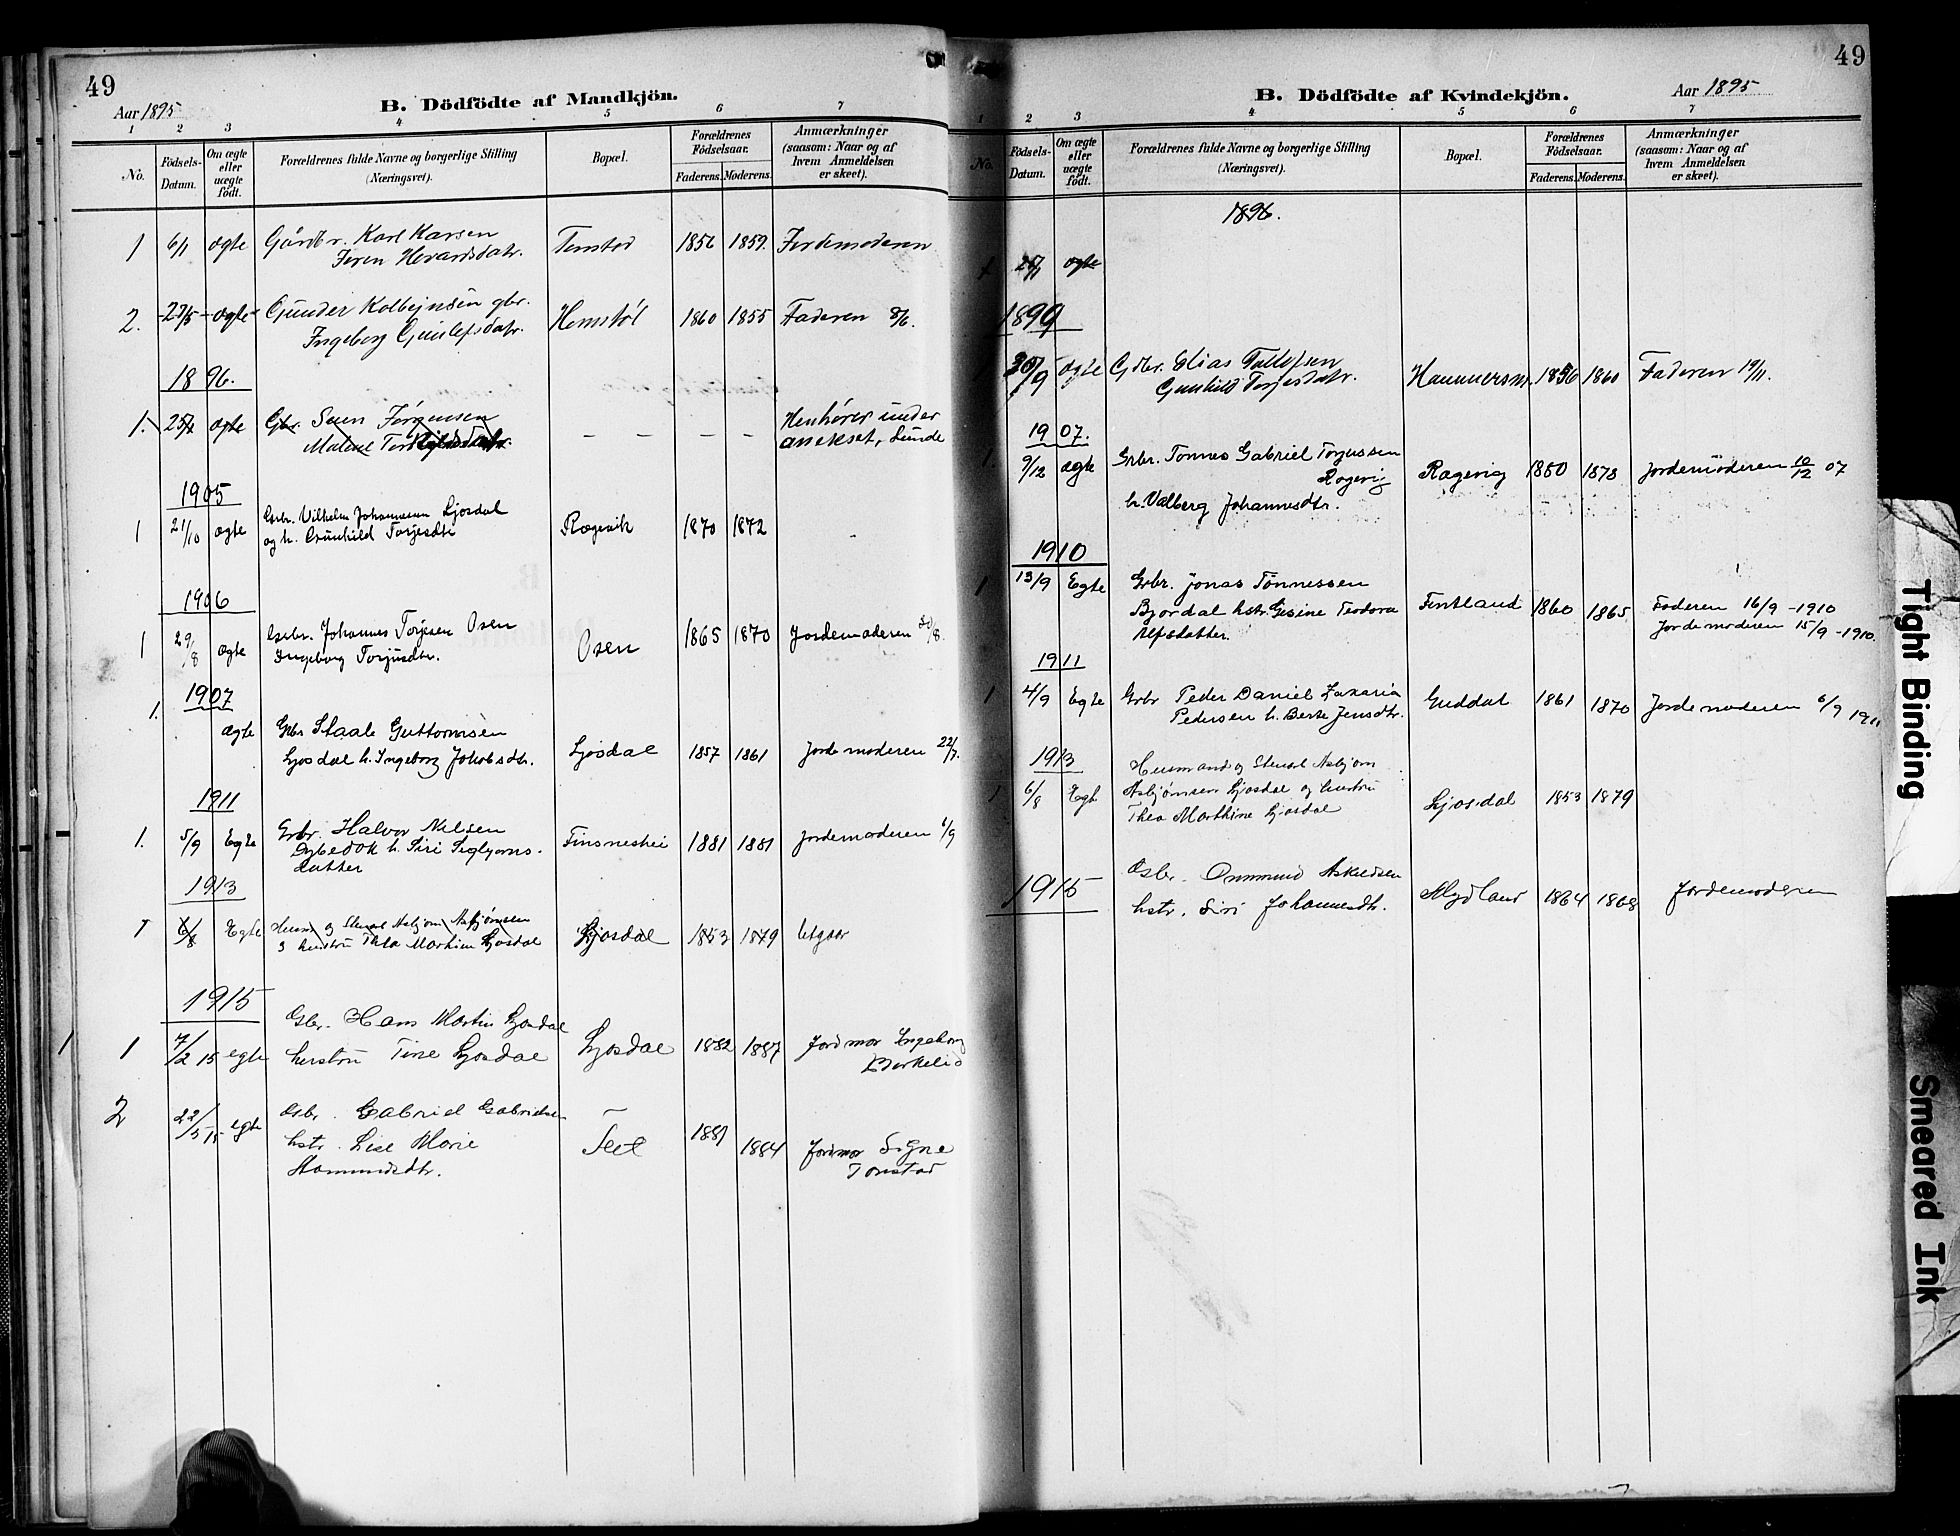 49
Aar 1895
B. Dödfödte af Mandkjön.
1 2 3 4 5 6 7
No.
Födsels-
Datum.
Om ægte
eller
uægte
født.
Forældrenes fulde Navne og borgerlige Stilling
(Næringsvei).
Bopæl.
Forældrenes
Födselsaar.
Faderens. Moderens.
Anmærkninger
(saasom: Naar og af
hvem Anmeldelsen
er skeet).
1 6/1 ægte Gårdbr. Karl Karsen Tonstad 1856 1859. Jordemoderen
Hovardsdatr.
2. ægte Gunder Kolbejnsen gbr. Homstøl 1860 1855 Faderen 8/6.
Ingeborg Gunlefsdatr.
1896.
1. ægte Gbr. Sven Jørgensen – – – – Henhører under
Malene anekset, Lunde
1905
1 21/10 ægte Grbr. Vilhelm Johannesen Ljosdal Rægevik 1870 1872
og h. Gunhild Torjesdtr
1906
1 29/8 ægte Grbr. Johannes Torjesen Osen Osen 1865 1870 Jordemoderen 30/8.
Ingeborg Torjusdtr.
1907
1. ægte Grbr Staale Guttormsen
Ljosdal h. Ingeborg Jakobsdtr. Ljosdal 1857 1861 Jordemoderen 22/7.
1911
1. 5/9 Egte Grbr. Halvor Nilsen Finsneshei 1881 1881 Jordemoderen 6/9
h. Siri
datter
1913
1 6/8 Egte Husm og Stensl Asbjørn Asbjørnsen Ljosdal 1853 1879 Utgaar
og hustru Thea Marthine Ljosdal
1915
Gbr. Hans Martin Ljosdal
1 7/2 15 egte hustru Tine Ljosdal Ljosdal 1882 1887 Jordmor Ingeborg
Birkelid
2 22/5 15 egte Gbr. Gabriel Gabrielsen
hstr. Lise Marie 1881 1884 Jordmor Signe
Tonstad
49
B. Dödfödte af Kvindekjön.
Aar 1895
1 2 3 4 5 6 7
No.
Födsels-
Datum.
Om ægte
eller
uægte
født.
Forældrenes fulde Navne og borgerlige Stilling
(Næringsvei).
Bopæl.
Forældrenes
Födselsaar.
Faderens. Moderens.
Anmærkninger
(saasom: Naar og af
hvem Anmeldelsen
er skeet).
1896.
ægte
1899
30/9 ægte Gdbr. Elias Tallefsen 1856 1860 Faderen 19/11.
Gunhild Torjesdatr.
1907.
1. 9/12 ægte Grbr. Tönnes Gabriel Torjussen
Rægevig Rægevig 1850 1878 Jordemoderen 10/12 07
h. Valberg Johannesdtr.
1910
1 13/9 Egte Grbr. Jonas Tönnessen
Bjordal hstr. Gesine Teodora Fintland 1860 1865 Faderen 16/9 – 1910
Alfsdatter. Jordemoderen 15/9 – 1910.
1911
1 4/9 Egte Grbr Peder Daniel Zakaria Guddal 1861 1870 Jordemoderen 6/9 1911
Pedersen h. Berte Jensdtr.
1913
Husmand og Stensl Asbjørn
1 6/8 Egte Asbjørnsen Ljosdal og hustru Ljosdal 1853 1879
Thea Marthine Ljosdal
1915
Gbr. Ommund Askildsen Mydland 1864 1868 Jordemoderen
hstr. Siri Johannesdtr.
Tight Binding
Smeared Ink